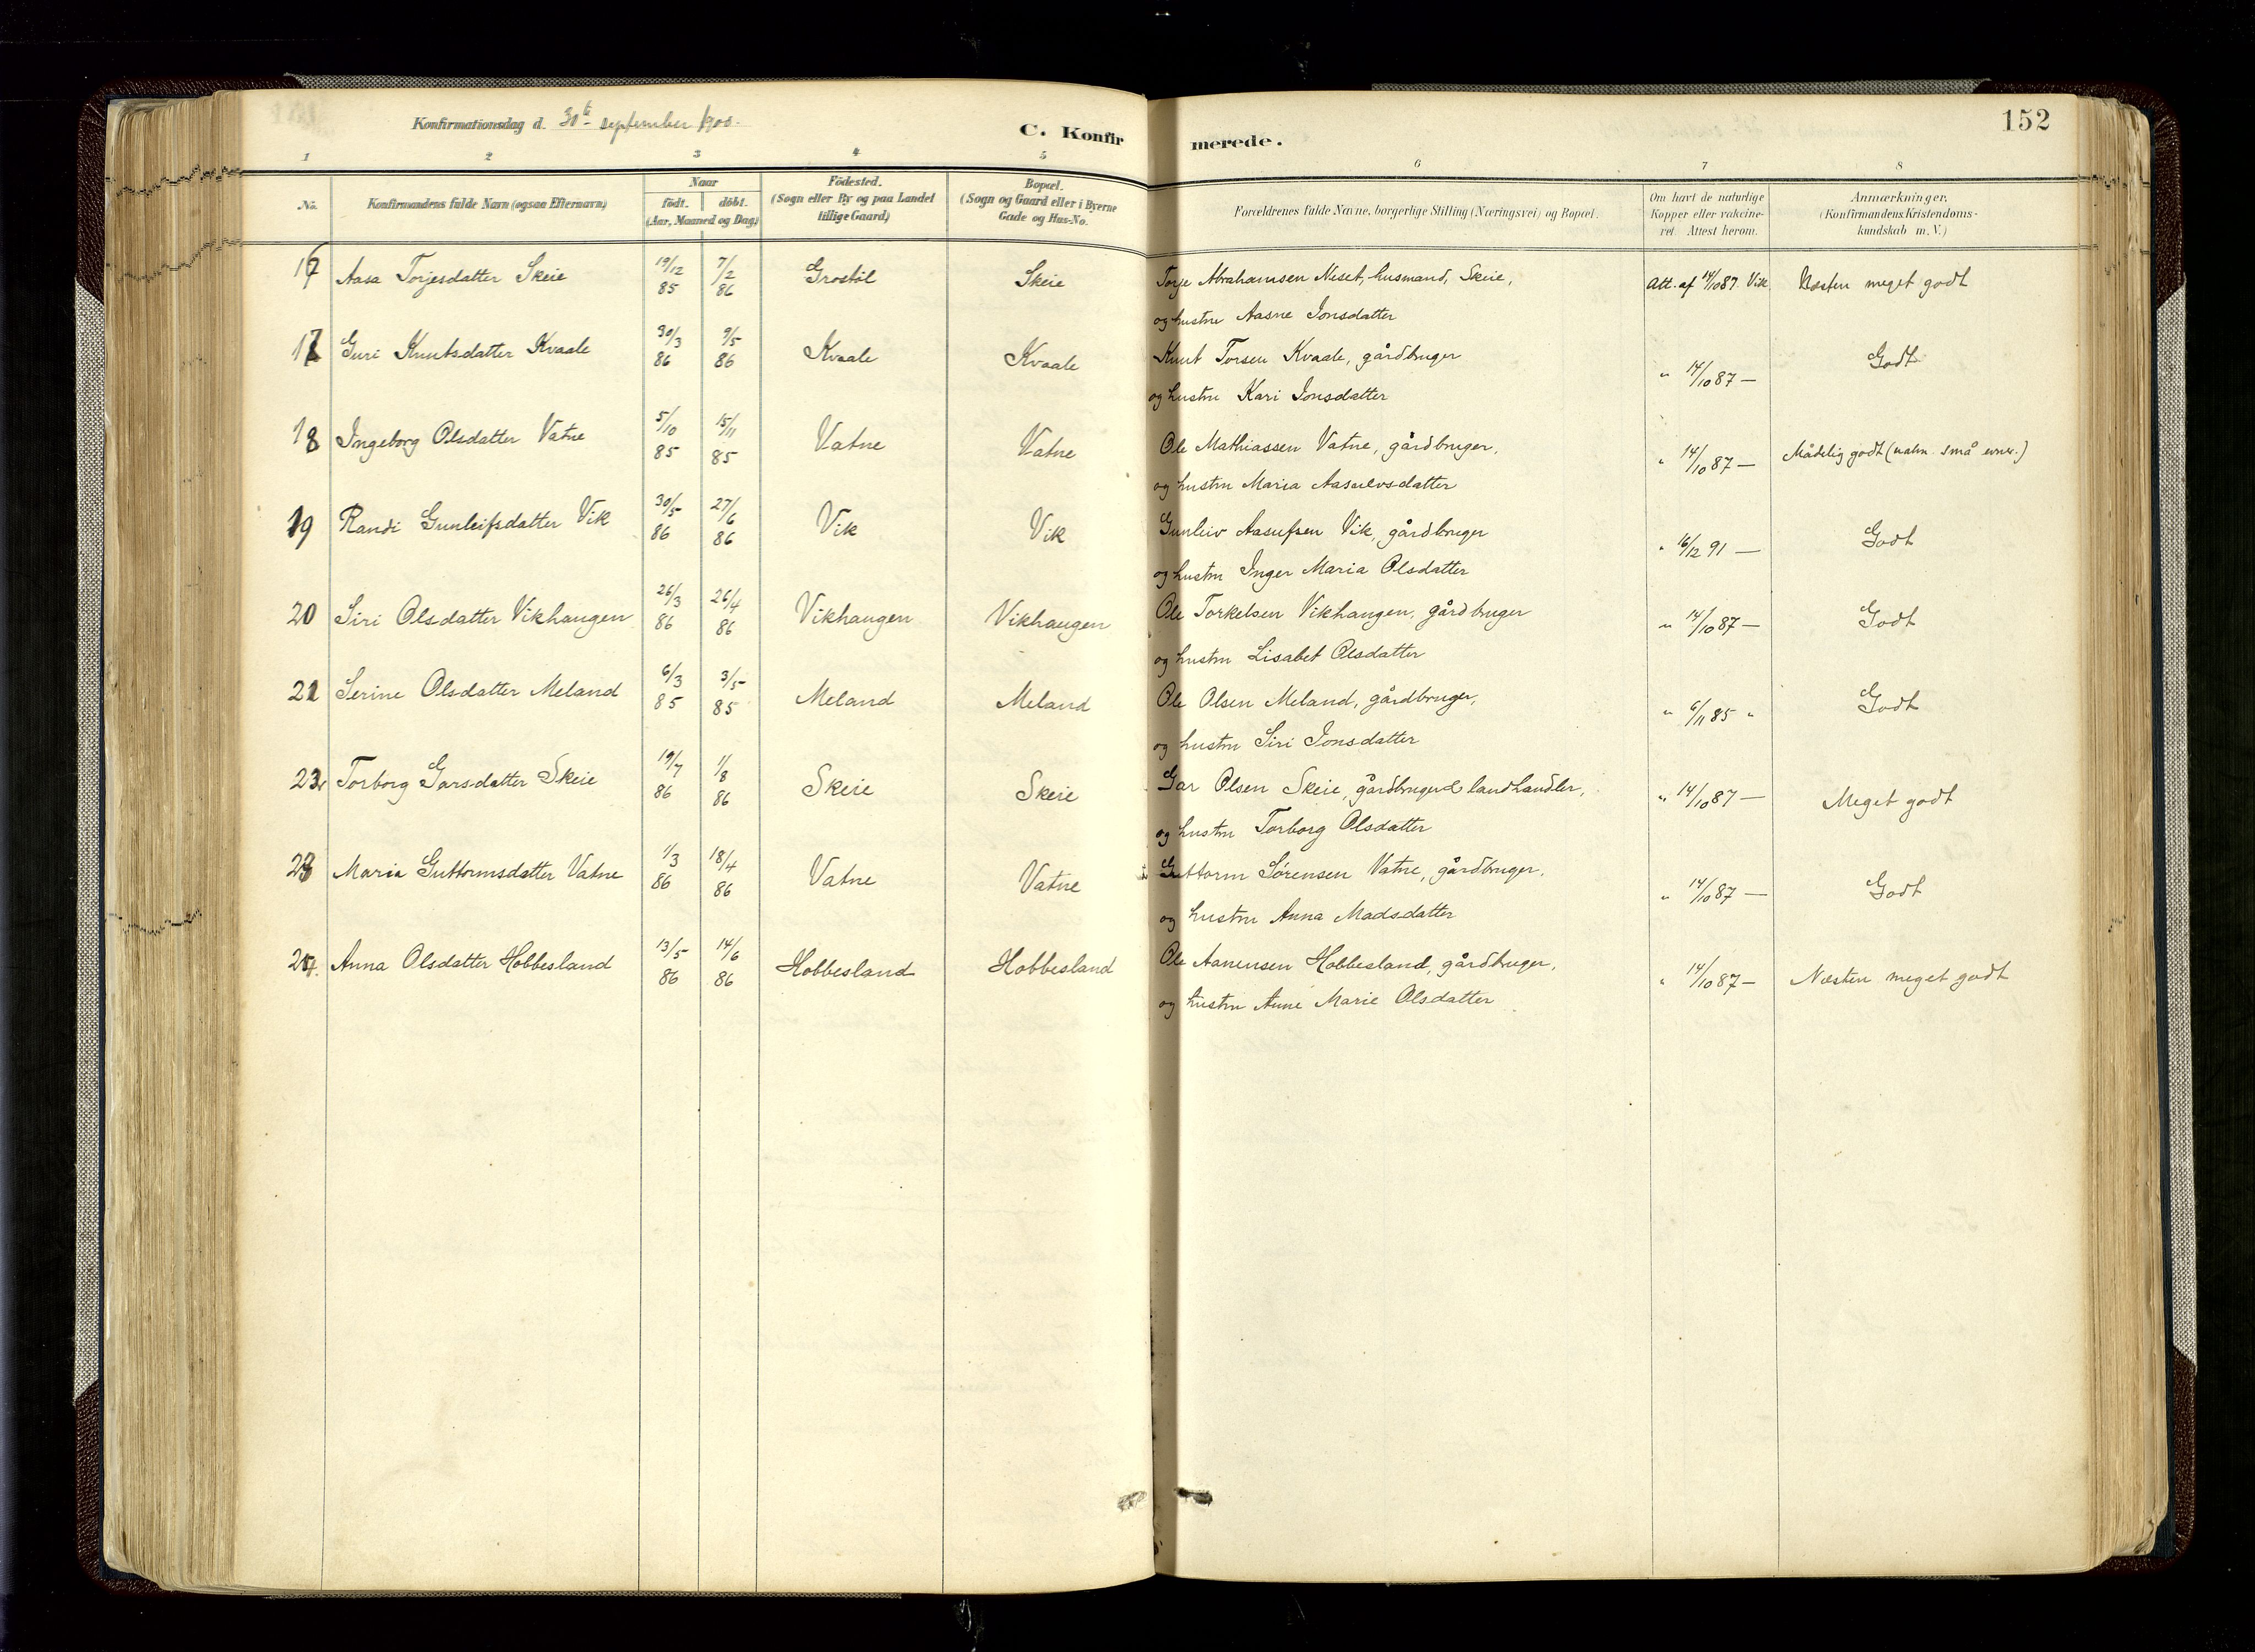 152
Konfirmationsdag d. 30te september 1900.
C. Konfirmerede.
1 2 3 4 5 6 7 8
No. Konfirmandens fulde Navn (ogsaa Efternavn) Naar födt. döbt. (Aar, Maaned og Dag) Födested. (Sogn eller By og paa Landet tillige Gaard) Bopæl. (Sogn og Gaard eller i Byerne Gade og Hus-No. Forældrenes fulde Navne, borgerlige Stilling (Næringsvei) og Bopæl. Om havt de naturlige Kopper eller vakcineret. Attest herom. Anmærkninger. (Konfirmandens Kristendomskundskab m. V.)
16 Aasa Torjesdatter Skeie 19/12 85 7/2 86 Grostöl Skeie Torje Abrahamsen Neset, husmand, Skeie, Att. af 14/10 87. Vik Næsten meget godt
og hustru Aasne Jonsdatter
17 Guri Knutsdatter Kvaale 30/3 86 9/5 86 Kvaale Kvaale Knut Torsen Kvaale, gårdbruger " 14/10 87 — Godt
og hustru Kari Jonsdatter
18 Ingeborg Olsdatter Vatne 5/10 85 15/11 85 Vatne Vatne Ole Mathiassen Vatne, gårdbruger, " 14/10 87 — Mådelig godt ( små evner.)
og hustru Maria Aasulvsdatter
19 Randi Gunleifsdatter Vik 30/5 86 27/6 86 Vik Vik Gunleiv Aasulfsen Vik, gårdbruger " 16/12 91 — Godt
og hustru Inger Maria Olsdatter
20 Siri Olsdatter Vikhaugen 26/3 86 26/4 86 Vikhaugen Vikhaugen Ole Torkelsen Vikhaugen, gårdbruger " 14/10 87 — Godt
og hustru Lisabet Olsdatter
21 Serine Olsdatter Meland 6/3 85 3/5 85 Meland Meland Ole Olsen Meland, gårdbruger, " 6/11 85 " Godt
og hustru Siri Jonsdatter
22 Torborg Garsdatter Skeie 19/7 86 1/8 86 Skeie Skeie Gar Olsen Skeie, gårdbruger & landhandler, " 14/10 87 — Meget godt
og hustru Torborg Olsdatter
23 Maria Guttormsdatter Vatne 1/3 86 18/4 86 Vatne Vatne Guttorm Sörensen Vatne, gårdbruger, " 14/10 87 — Godt
og hustru Anna Madsdatter
24. Anna Olsdatter Hobbesland 13/5 86 14/6 86 Hobbesland Hobbesland Ole Aanensen Hobbesland, gårdbruger, " 14/10 87 — Næsten meget godt
og hustru Anne Marie Olsdatter